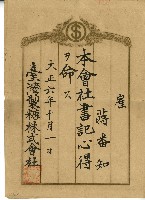 崔
蔣番知
本會社書記心得
ヲ命ス
大正六年十月一日
臺灣製糖株式會社